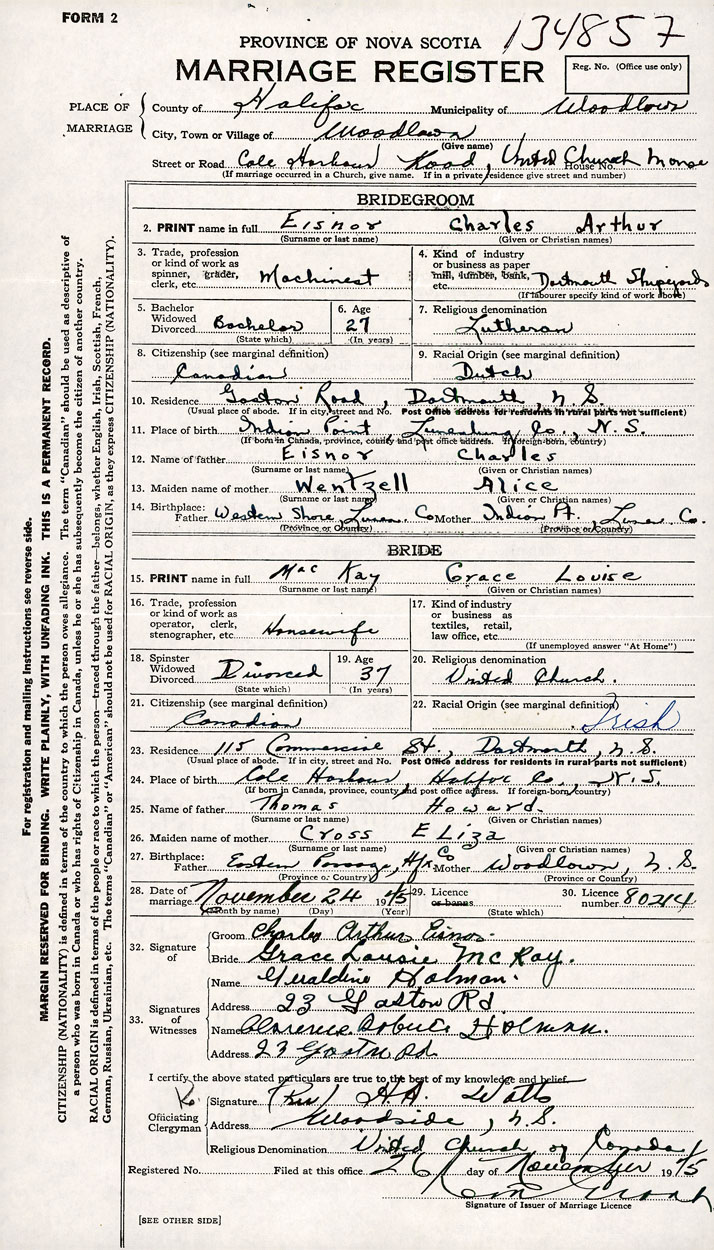 FORM 2
134857
PROVINCE OF NOVA SCOTIA
MARRIAGE REGISTER
Reg. No. (Office use only)
PLACE OF MARRIAGE
County of Halifax Municipality of Woodlawn
City, Town or Village of Woodlawn
(Give name)
Street or Road Cole Harbour Road, United Church Manse House No.
(If marriage occurred in a Church, give name. If in a private residence give street and number)
BRIDEGROOM
2. PRINT name in full Eisnor Charles Arthur
(Surname or last name) (Given or Christian names)
3. Trade, profession or kind of work as spinner, grader, clerk, etc. Machinest
4. Kind of industry or business as paper mill, lumber, bank, etc. Dartmouth Shipyards
(If labourer specify kind of work above)
5. Bachelor Widowed Divorced Bachelor
(State which)
6. Age 27
(In years)
7. Religious denomination
Lutheran
8. Citizenship (see marginal definition)
Canadian
9. Racial Origin (see marginal definition)
Dutch
10. Residence Gaston Road, Dartmouth, N.S.
(Usual place of abode. If in city, street and No. Post Office address for residents in rural parts not sufficient)
11. Place of birth Indian Point, Lunenburg Co., N.S.
(If born in Canada, province, county and post office address. If foreign-born, country)
12. Name of father Eisnor Charles
(Surname or last name) (Given or Christian names)
13. Maiden name of mother Wentzell Alice
(Surname or last name) (Given or Christian names)
14. Birthplace: Father Western Shore, Lunen. Co Mother Indian Pt., Lunen Co.
(Province or Country) (Province or Country)
BRIDE
15. PRINT name in full Mac Kay Grace Louise
(Surname or last name) (Given or Christian names)
16. Trade, profession or kind of work as operator, clerk, stenographer, etc. Housewife
17. Kind of industry or business as textiles, retail, law office, etc.
(If unemployed answer "At Home")
18. Spinster Widowed Divorced Divorced
(State which)
19. Age 37
(In years)
20. Religious denomination
United Church.
21. Citizenship (see marginal definition)
Canadian
22. Racial Origin (see marginal definition)
Irish
23. Residence 115 Commercial St., Dartmouth, N.S.
(Usual place of abode. If in city, street and No. Post Office address for residents in rural parts not sufficient)
24. Place of birth Cole Harbour, Halifax Co., N.S.
(If born in Canada, province, county and post office address. If foreign-born, country)
25. Name of father Thomas Howard
(Surname or last name) (Given or Christian names)
26. Maiden name of mother Cross Eliza
(Surname or last name) (Given or Christian names)
27. Birthplace: Father Eastern Passage, Hfx Co Mother Woodlawn, N.S.
(Province or Country) (Province or Country)
28. Date of marriage November 24 1945
(Month by name) (Day) (Year)
29. Licence or banns
(State which)
30. Licence number 80214
32. Signature of
Groom Charles Arthur Eisnor
Bride Grace Lousie McKay.
33. Signatures of Witnesses
Name Geraldine Holman.
Address 23 Gaston Rd
Name Clarence Robert Holman.
Address 23 Gaston Rd
I certify the above stated particulars are true to the best of my knowledge and belief
Officiating Clergyman
Signature (Rev) H.A. Watts
Address Woodside, N.S.
Religious Denomination United Church of Canada
Registered No. Filed at this office 26 day of November 1945
Signature of Issuer of Marriage Licence
[SEE OTHER SIDE]
For registration and mailing instructions see reverse side.
MARGIN RESERVED FOR BINDING. WRITE PLAINLY, WITH UNFADING INK. THIS IS A PERMANENT RECORD.
CITIZENSHIP (NATIONALITY) is defined in terms of the country to which the person owes allegiance. The term "Canadian" should be used as descriptive of
a person who was born in Canada or who has rights of Citizenship in Canada, unless he or she has subsequently become the citizen of another country.
RACIAL ORIGIN is defined in terms of the people or race to which the person—traced through the father—belongs, whether English, Irish, Scottish, French,
German, Russian, Ukrainian, etc. The terms "Canadian" or "American" should not be used for RACIAL ORIGIN, as they express CITIZENSHIP (NATIONALITY).